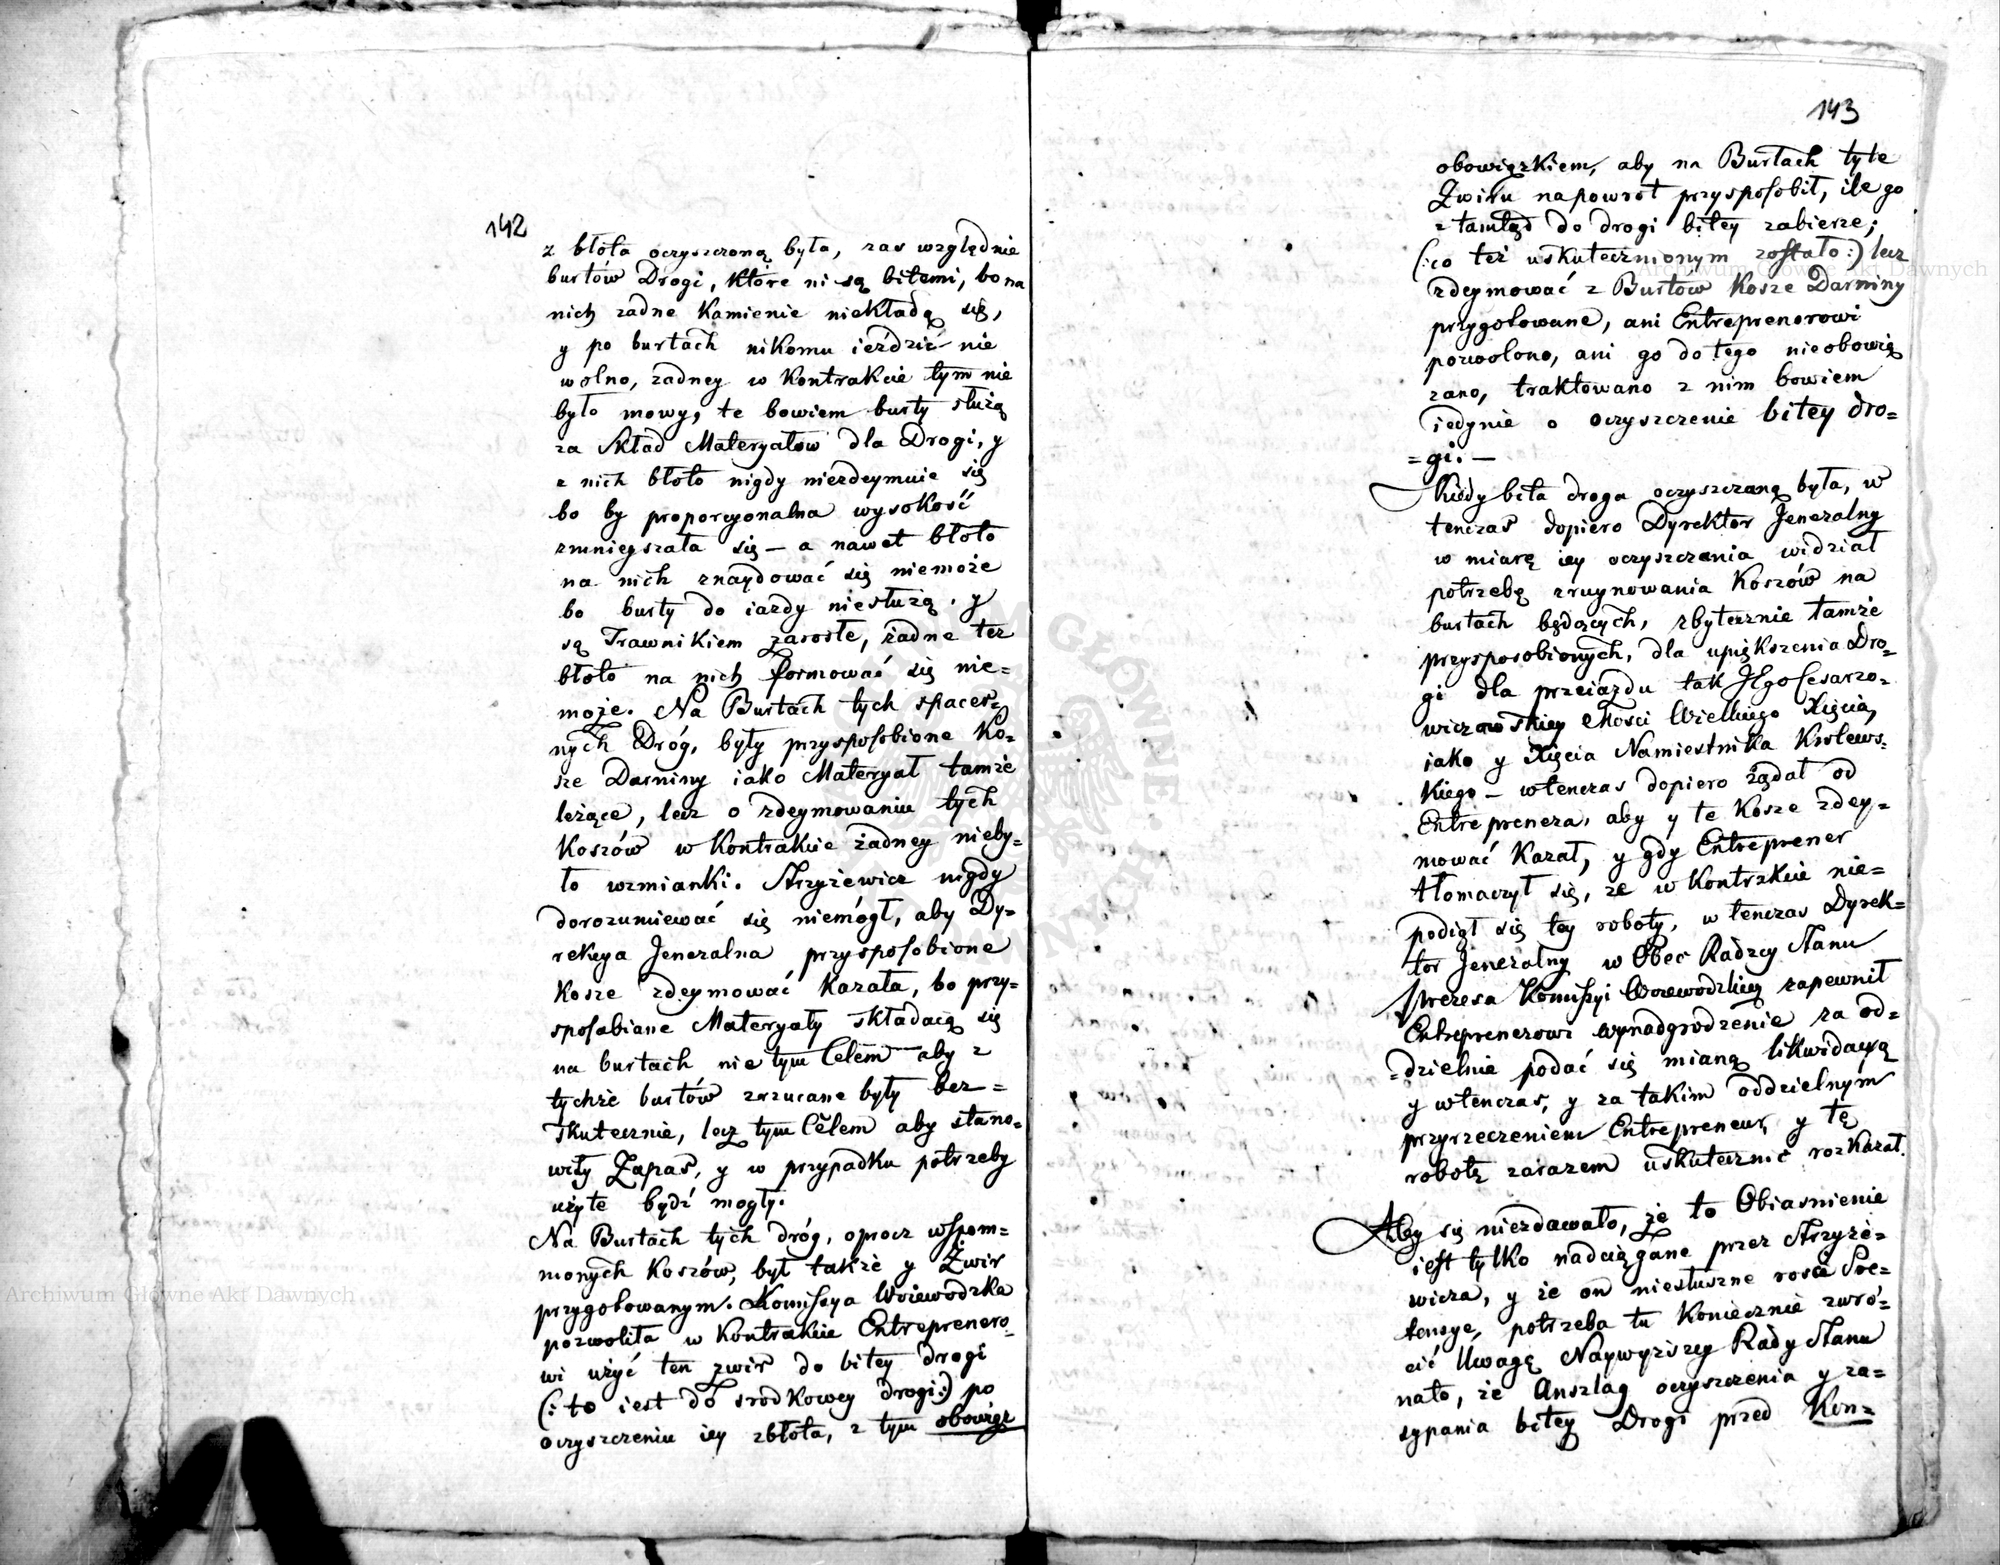 142
z błóta oczyszczoną była, zas względnie
burtów Drogi, które ni są bitemi, bo na
nich zadne Kamienie niekładą się,
y po burtach nikomu ieździć nie
wolno, żadney w Kontrakcie tym nie
było mowy, te bowiem burty służą
za Skład Materyałow dla Drogi, y
z nich błoto nigdy niezdeymuie się
bo by proporcyonalna wysokość
zmnieyszała się — a nawet błoto
na nich znaydować się niemoże
bo burty do iazdy niesłużą, y
są Trawnikiem zarosłe, żadne też
błoto na nich formować się nie=
może. Na Burtach tych spacer=
nych Dróg, były przysposobione Ko=
sze Darniny iako Materyał tamże
leżące, lecz o zdeymowaniu tych
Koszów w Kontrakcie żadney nieby=
ło wzmianki. Strzyżewicz nigdy
dorozumiewać się niemógł, aby Dy=
rekcya Jeneralna przysposobione
Kosze zdeymować kazała, bo przy=
sposabiane Materyały składaią się
na burtach nie tym Celem aby z
tychże burtów zrzucane były bez=
skutecznie, lecz tym Celem aby stano=
wiły Zapas, y w przypadku potrzeby
użyte bydź mogły.
Na Burtach tych dróg, oprocz wspom=
nionych Koszów, był także y Żwir
przygotowanym. Kommissya Woiewodzka
pozwoliła w Kontrakcie Entreprenero=
wi użyć ten zwir do bitey drogi
(: to iest do srodkowey drogi :) po
oczyszczeniu iey zbłota, z tym obowiąz
143
obowiązkiem, aby na Burtach tyle
Żwiru napowrot przysposobił, ile go
z tamtąd do drogi bitey zabierze;
(: co też uskutecznionym zostało :) lecz
zdeymować z Burtów Kosze Darniny
przygotowane, ani Entreprenerowi
pozwolono, ani go do tego nieobowią
zano, traktowano z nim bowiem
iedynie o oczyszczenie bitey dro=
=gi. —
Kiedy bita droga oczyszczaną była, w
tenczas dopiero Dyrektor Jeneralny
w miarę iey oczyszczania widział
potrzebę zruynowania Koszów na
burtach będących, zbytecznie tamże
przysposobionych, dla upiększenia Dro=
gi dla przeiazdu tak JEgo Cesarzo=
wiczowskiey Mości Wielkiego Xięcia,
iako y Xięcia Namiestnika Krolews=
kiego — wtenczas dopiero żądał od
Entreprenera, aby y te Kosze zdey=
mować kazał, y gdy Entreprener
tłomaczył się, ze w Kontrakcie nie=
podiął się tey roboty, w tenczas Dyrek=
tor Jeneralny w Obec Radzcy Stanu
Prezesa Komissyi Woiewodzkiey zapewnił
Entreprenerowi wynadgrodzenie za od=
=dzielnie podać się mianą likwidacyą
y wtenczas, y za takim oddzielnym
przyrzeczeniem Entrepreneur, y tę
robotę zarazem uskutecznić rozkazał.
Aby się niezdawało, że to Obiasnienie
iest tylko nadciągane przez Strzyże=
wicza, y że on niesłuszne rosci Pre=
tensye, potrzeba tu Koniecznie zwró=
cić Uwagę Naywyższey Rady Stanu
nato, że Anszlag oczyszczenia y za=
sypania bitey Drogi przed Kon=
Archiwum Główne Akt Dawnych
Archiwum Główne Akt Dawnych